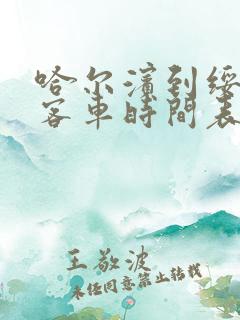 哈尔滨到绥
客車時間表
王敬波
未经同意禁止转载